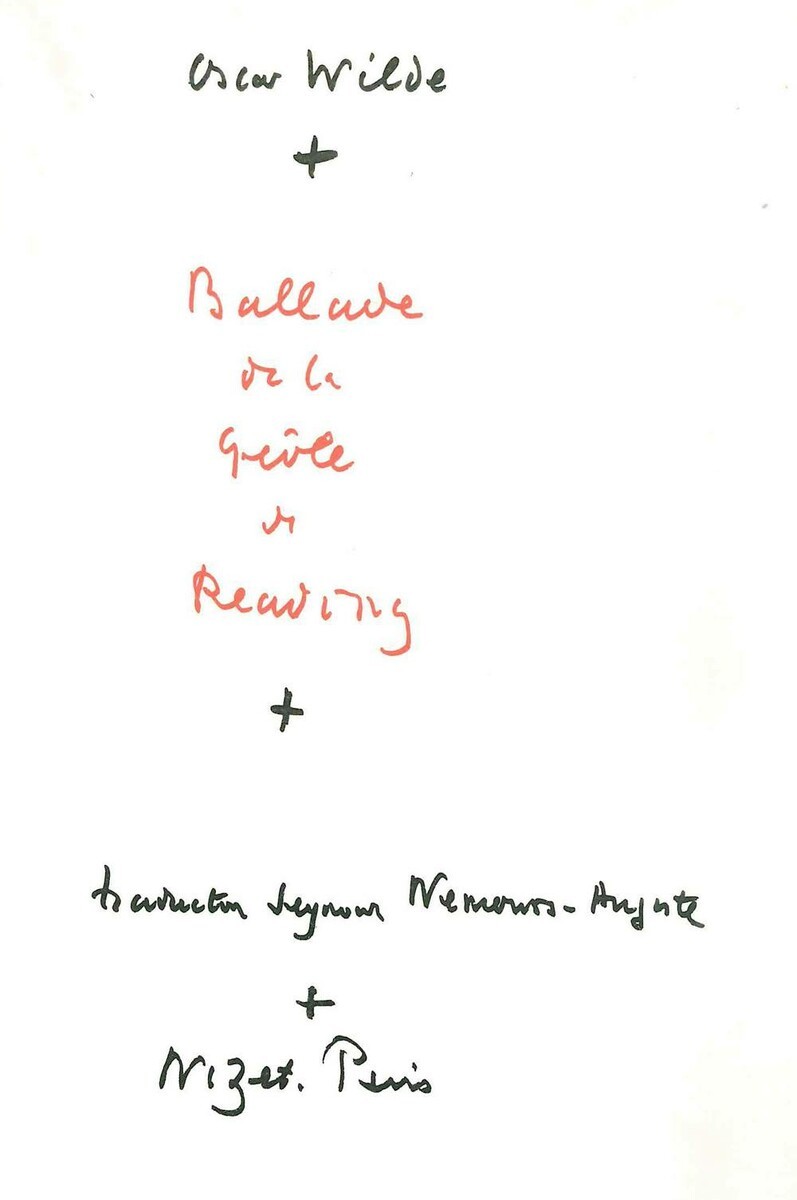 Oscar Wilde
+
Ballade
de la
Geôle
de
Reading
+
traduction Seymour Nemours-Auguste
+
Nizet. Paris